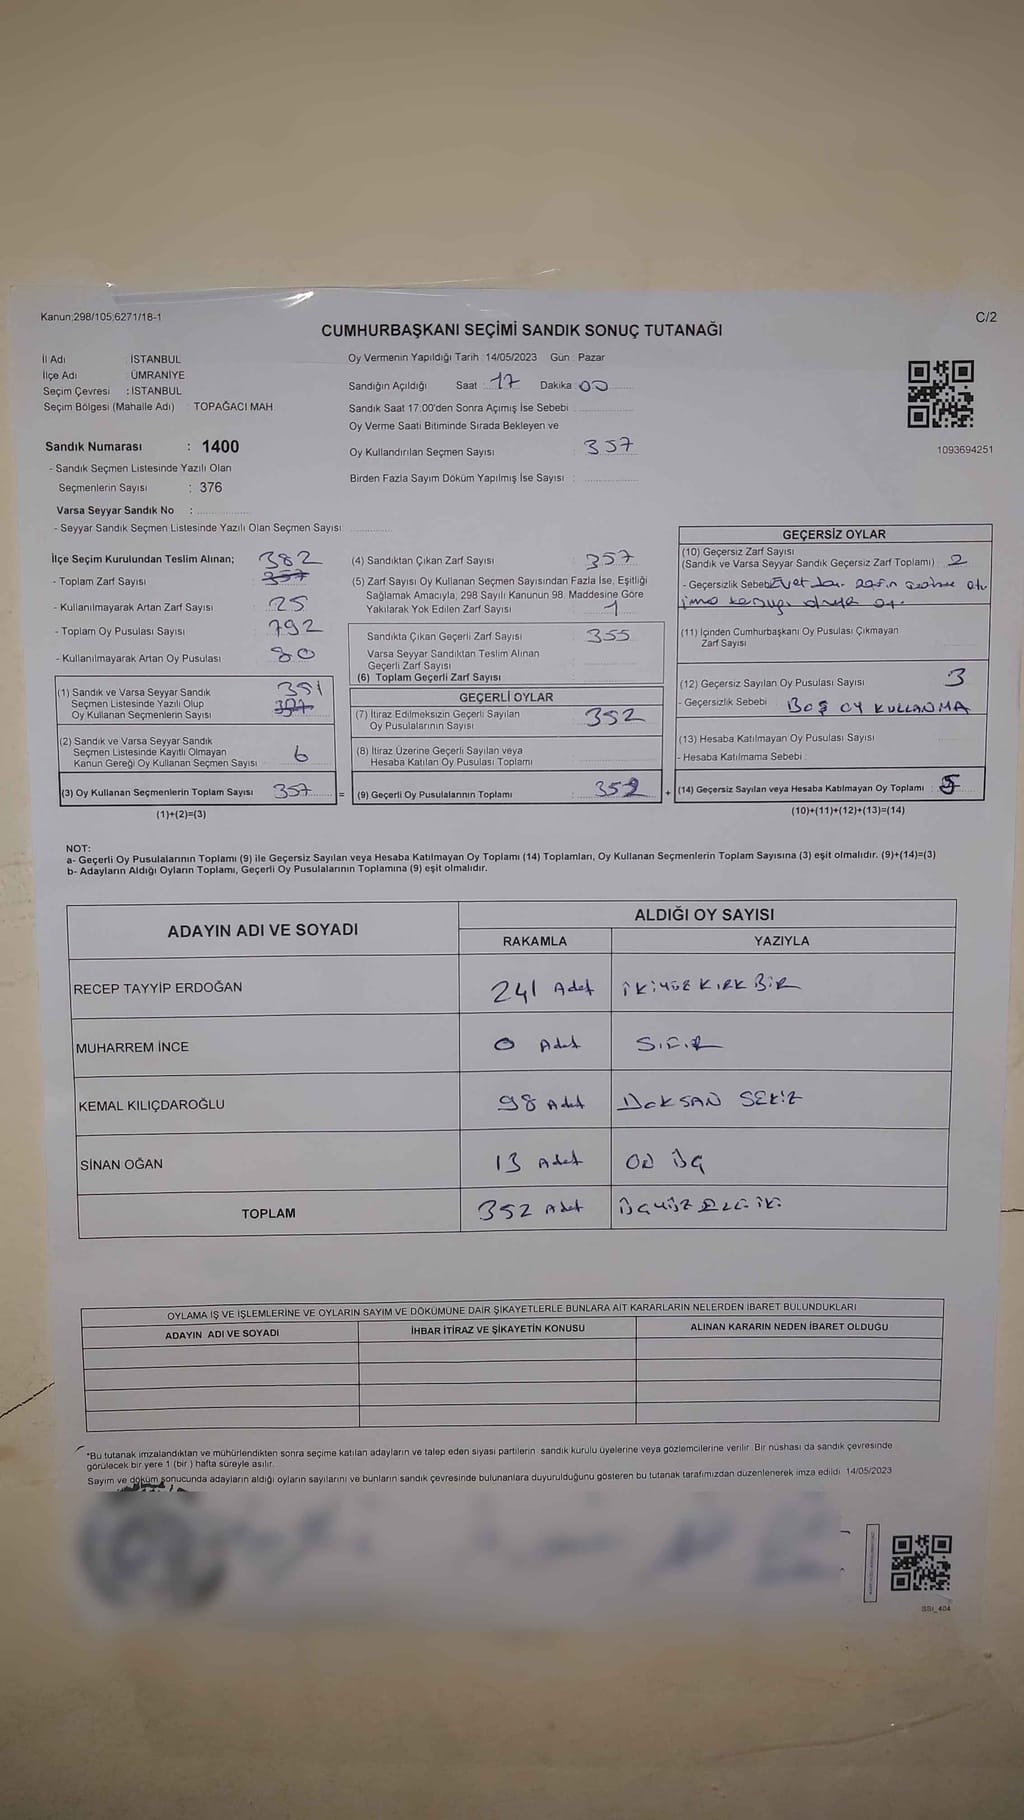 Kanun;298/105,6271/18-1
C/2
CUMHURBAŞKANI SEÇİMİ SANDIK SONUÇ TUTANAĞI
İl Adı : İSTANBUL
İlçe Adı : ÜMRANİYE
Seçim Çevresi : İSTANBUL
Seçim Bölgesi (Mahalle Adı) : TOPAĞACI MAH.
Sandık Numarası : 1400
- Sandık Seçmen Listesinde Yazılı Olan
Seçmenlerin Sayısı : 376
Varsa Seyyar Sandık No :
- Seyyar Sandık Seçmen Listesinde Yazılı Olan Seçmen Sayısı:
Oy Vermenin Yapıldığı Tarih : 14/05/2023 Gün : Pazar
Sandığın Açıldığı Saat : 17 Dakika : 00
Sandık Saat 17:00'den Sonra Açımış İse Sebebi :
Oy Verme Saati Bitiminde Sırada Bekleyen ve
Oy Kullandırılan Seçmen Sayısı : 357
Birden Fazla Sayım Döküm Yapılmış İse Sayısı :
1093694251
İlçe Seçim Kurulundan Teslim Alınan; 382
- Toplam Zarf Sayısı : 357
- Kullanılmayarak Artan Zarf Sayısı : 25
- Toplam Oy Pusulası Sayısı : 792
- Kullanılmayarak Artan Oy Pusulası : 80
(1) Sandık ve Varsa Seyyar Sandık
Seçmen Listesinde Yazılı Olup
Oy Kullanan Seçmenlerin Sayısı : 351
(2) Sandık ve Varsa Seyyar Sandık
Seçmen Listesinde Kayıtlı Olmayan
Kanun Gereği Oy Kullanan Seçmen Sayısı : 6
(3) Oy Kullanan Seçmenlerin Toplam Sayısı : 357 =
(1)+(2)=(3)
(4) Sandıktan Çıkan Zarf Sayısı : 357
(5) Zarf Sayısı Oy Kullanan Seçmen Sayısından Fazla İse, Eşitliği
Sağlamak Amacıyla, 298 Sayılı Kanunun 98. Maddesine Göre
Yakılarak Yok Edilen Zarf Sayısı : 1
Sandıkta Çıkan Geçerli Zarf Sayısı : 355
Varsa Seyyar Sandıktan Teslim Alınan
Geçerli Zarf Sayısı :
(6) Toplam Geçerli Zarf Sayısı :
GEÇERLİ OYLAR
(7) İtiraz Edilmeksizin Geçerli Sayılan
Oy Pusulalarının Sayısı : 352
(8) İtiraz Üzerine Geçerli Sayılan veya
Hesaba Katılan Oy Pusulası Toplamı :
(9) Geçerli Oy Pusulalarının Toplamı : 352 +
GEÇERSİZ OYLAR
(10) Geçersiz Zarf Sayısı
(Sandık ve Varsa Seyyar Sandık Geçersiz Zarf Toplamı) : 2
- Geçersizlik Sebebi:
(11) İçinden Cumhurbaşkanı Oy Pusulası Çıkmayan
Zarf Sayısı :
(12) Geçersiz Sayılan Oy Pusulası Sayısı : 3
- Geçersizlik Sebebi : BOŞ OY KULLANMA
(13) Hesaba Katılmayan Oy Pusulası Sayısı :
- Hesaba Katılmama Sebebi :
(14) Geçersiz Sayılan veya Hesaba Katılmayan Oy Toplamı : 5
(10)+(11)+(12)+(13)=(14)
NOT:
a- Geçerli Oy Pusulalarının Toplamı (9) ile Geçersiz Sayılan veya Hesaba Katılmayan Oy Toplamı (14) Toplamları, Oy Kullanan Seçmenlerin Toplam Sayısına (3) eşit olmalıdır. (9)+(14)=(3)
b- Adayların Aldığı Oyların Toplamı, Geçerli Oy Pusulalarının Toplamına (9) eşit olmalıdır.
ADAYIN ADI VE SOYADI
ALDIĞI OY SAYISI
RAKAMLA YAZIYLA
RECEP TAYYİP ERDOĞAN 241 Adet İKİYÜZ KIRK BİR
MUHARREM İNCE 0 Adet SIFIR
KEMAL KILIÇDAROĞLU 98 Adet DOKSAN SEKİZ
SİNAN OĞAN 13 Adet ON ÜÇ
TOPLAM 352 Adet ÜÇYÜZ ELLİ İKİ
OYLAMA İŞ VE İŞLEMLERİNE VE OYLARIN SAYIM VE DÖKÜMÜNE DAİR ŞİKAYETLERLE BUNLARA AİT KARARLARIN NELERDEN İBARET BULUNDUKLARI
ADAYIN ADI VE SOYADI İHBAR İTİRAZ VE ŞİKAYETİN KONUSU ALINAN KARARIN NEDEN İBARET OLDUĞU
*Bu tutanak imzalandıktan ve mühürlendikten sonra seçime katılan adayların ve talep eden siyasi partilerin sandık kurulu üyelerine veya gözlemcilerine verilir. Bir nüshası da sandık çevresinde
görülecek bir yere 1 (bir ) hafta süreyle asılır.
Sayım ve döküm sonucunda adayların aldığı oyların sayılarını ve bunların sandık çevresinde bulunanlara duyurulduğunu gösteren bu tutanak tarafımızdan düzenlenerek imza edildi. 14/05/2023
SSI_404